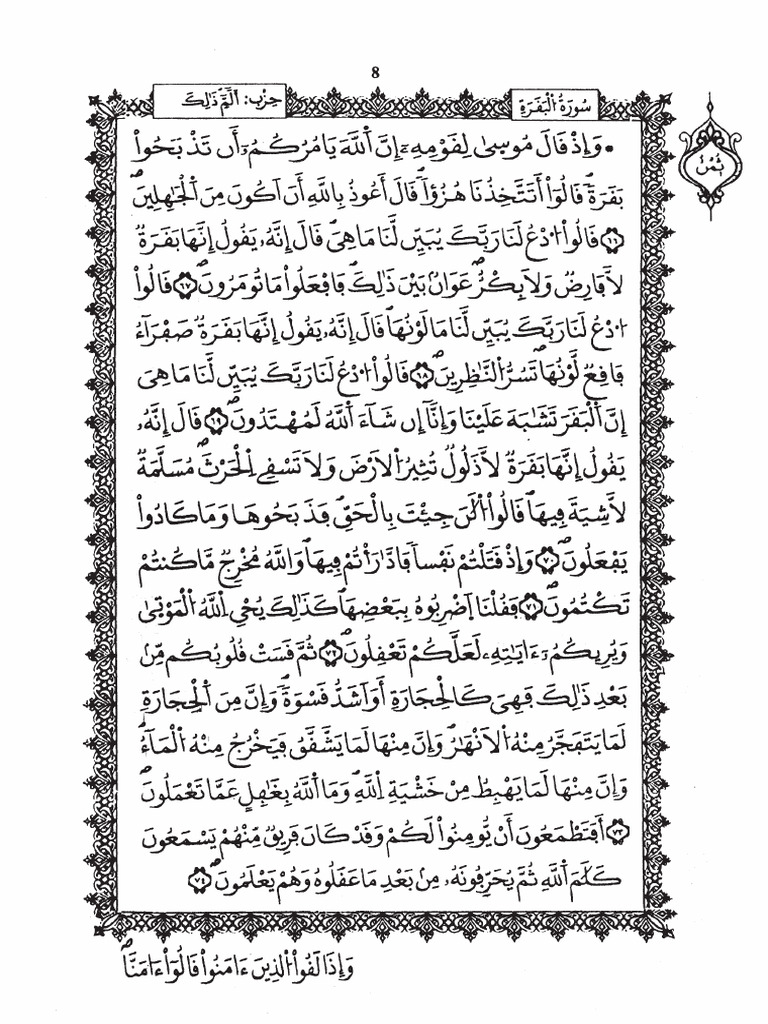 8
سُورَةُ الْبَقَرَةِ
حِزْب: أَلَمِّ ذَٰلِكَ
ثُمُنْ
• وَإِذْ قَالَ مُوسِىٰ لِقَوْمِهِۦٓ إِنَّ اَ۬للَّهَ يَامُرُكُمُۥٓ أَن تَذْبَحُواْ
بَقَرَةٗۖ قَالُوٓاْ أَتَتَّخِذُنَا هُزُؤاٗۖ قَالَ أَعُوذُ بِاللَّهِ أَنَ اَكُونَ مِنَ اَ۬لْجَٰهِلِينَۖ
٦٦ قَالُواْ اُ۟دْعُ لَنَا رَبَّكَ يُبَيِّن لَّنَا مَا هِيَۖ قَالَ إِنَّهُۥ يَقُولُ إِنَّهَا بَقَرَةٞ
لَّا فَارِضٞ وَلَا بِكْرٌۖ عَوَانُۢ بَيْنَ ذَٰلِكَۖ فَافْعَلُواْ مَا تُومَرُونَۖ ٦٧ قَالُواْ
اُ۟دْعُ لَنَا رَبَّكَ يُبَيِّن لَّنَا مَا لَوْنُهَاۖ قَالَ إِنَّهُۥ يَقُولُ إِنَّهَا بَقَرَةٞ صَفْرَآءُ
فَاقِعٞ لَّوْنُهَاۖ تَسُرُّ اُ۬لنَّٰظِرِينَۖ ٦٨ قَالُواْ اُ۟دْعُ لَنَا رَبَّكَ يُبَيِّن لَّنَا مَا هِيَ
إِنَّ اَ۬لْبَقَرَ تَشَٰبَهَ عَلَيْنَا وَإِنَّآ إِن شَآءَ اَ۬للَّهُ لَمُهْتَدُونَۖ ٦٩ قَالَ إِنَّهُۥ
يَقُولُ إِنَّهَا بَقَرَةٞ لَّا ذَلُولٞ تُثِيرُ اُ۬لَارْضَ وَلَا تَسْقِے اِ۬لْحَرْثَۖ مُسَلَّمَةٞ
لَّا شِيَةَ فِيهَاۖ قَالُواْ اُ۬لَٰنَ جِئْتَ بِالْحَقِّۖ فَذَبَحُوهَا وَمَا كَادُواْ
يَفْعَلُونَۖ ٧٠ وَإِذْ قَتَلْتُمْ نَفْساٗ فَادَّٰرَٰٔتُمْ فِيهَاۖ وَاللَّهُ مُخْرِجٞ مَّا كُنتُمْ
تَكْتُمُونَۖ ٧١ فَقُلْنَا اَ۪ضْرِبُوهُ بِبَعْضِهَاۖ كَذَٰلِكَ يُحْيِ اِ۬للَّهُ اُ۬لْمَوْتۭىٰ
وَيُرِيكُمُۥٓ ءَايَٰتِهِۦ لَعَلَّكُمْ تَعْقِلُونَۖ ٧٢ ثُمَّ قَسَتْ قُلُوبُكُم مِّنۢ
بَعْدِ ذَٰلِكَ فَهِيَ كَالْحِجَارَةِ أَوَ اَشَدُّ قَسْوَةٗۖ وَإِنَّ مِنَ اَ۬لْحِجَارَةِ
لَمَا يَتَفَجَّرُ مِنْهُ اُ۬لَانْهَٰرُۖ وَإِنَّ مِنْهَا لَمَا يَشَّقَّقُ فَيَخْرُجُ مِنْهُ اُ۬لْمَآءُۖ
وَإِنَّ مِنْهَا لَمَا يَهْبِطُ مِنْ خَشْيَةِ اِ۬للَّهِۖ وَمَا اَ۬للَّهُ بِغَٰفِلٍ عَمَّا تَعْمَلُونَۖ
٧٣ أَفَتَطْمَعُونَ أَنْ يُّومِنُواْ لَكُمْ وَقَدْ كَانَ فَرِيقٞ مِّنْهُمْ يَسْمَعُونَ
كَلَٰمَ اَ۬للَّهِ ثُمَّ يُحَرِّفُونَهُۥ مِنۢ بَعْدِ مَا عَقَلُوهُ وَهُمْ يَعْلَمُونَۖ ٧٤
وَإِذَا لَقُواْ اُ۬لذِينَ ءَامَنُواْ قَالُوٓاْ ءَامَنَّاۖ